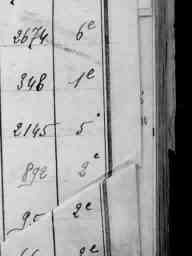 2674 6e
348 1e
2145 5
892 2e
90 2e